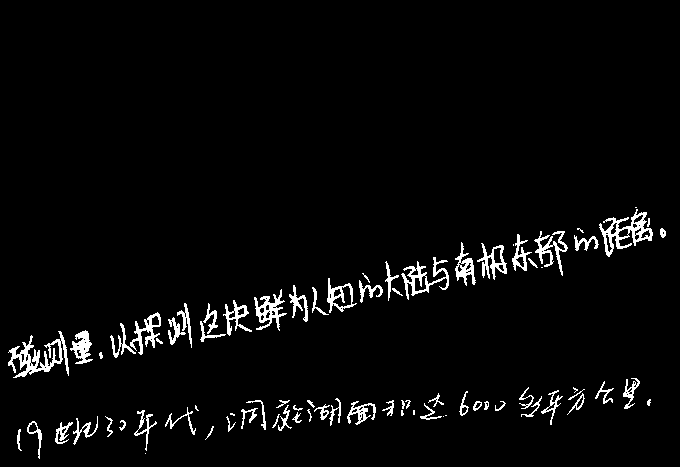 磁测量,以探测这块鲜为人知的大陆与南极东部的距离。
19世纪30年代,洞庭湖面积达6000多平方公里.